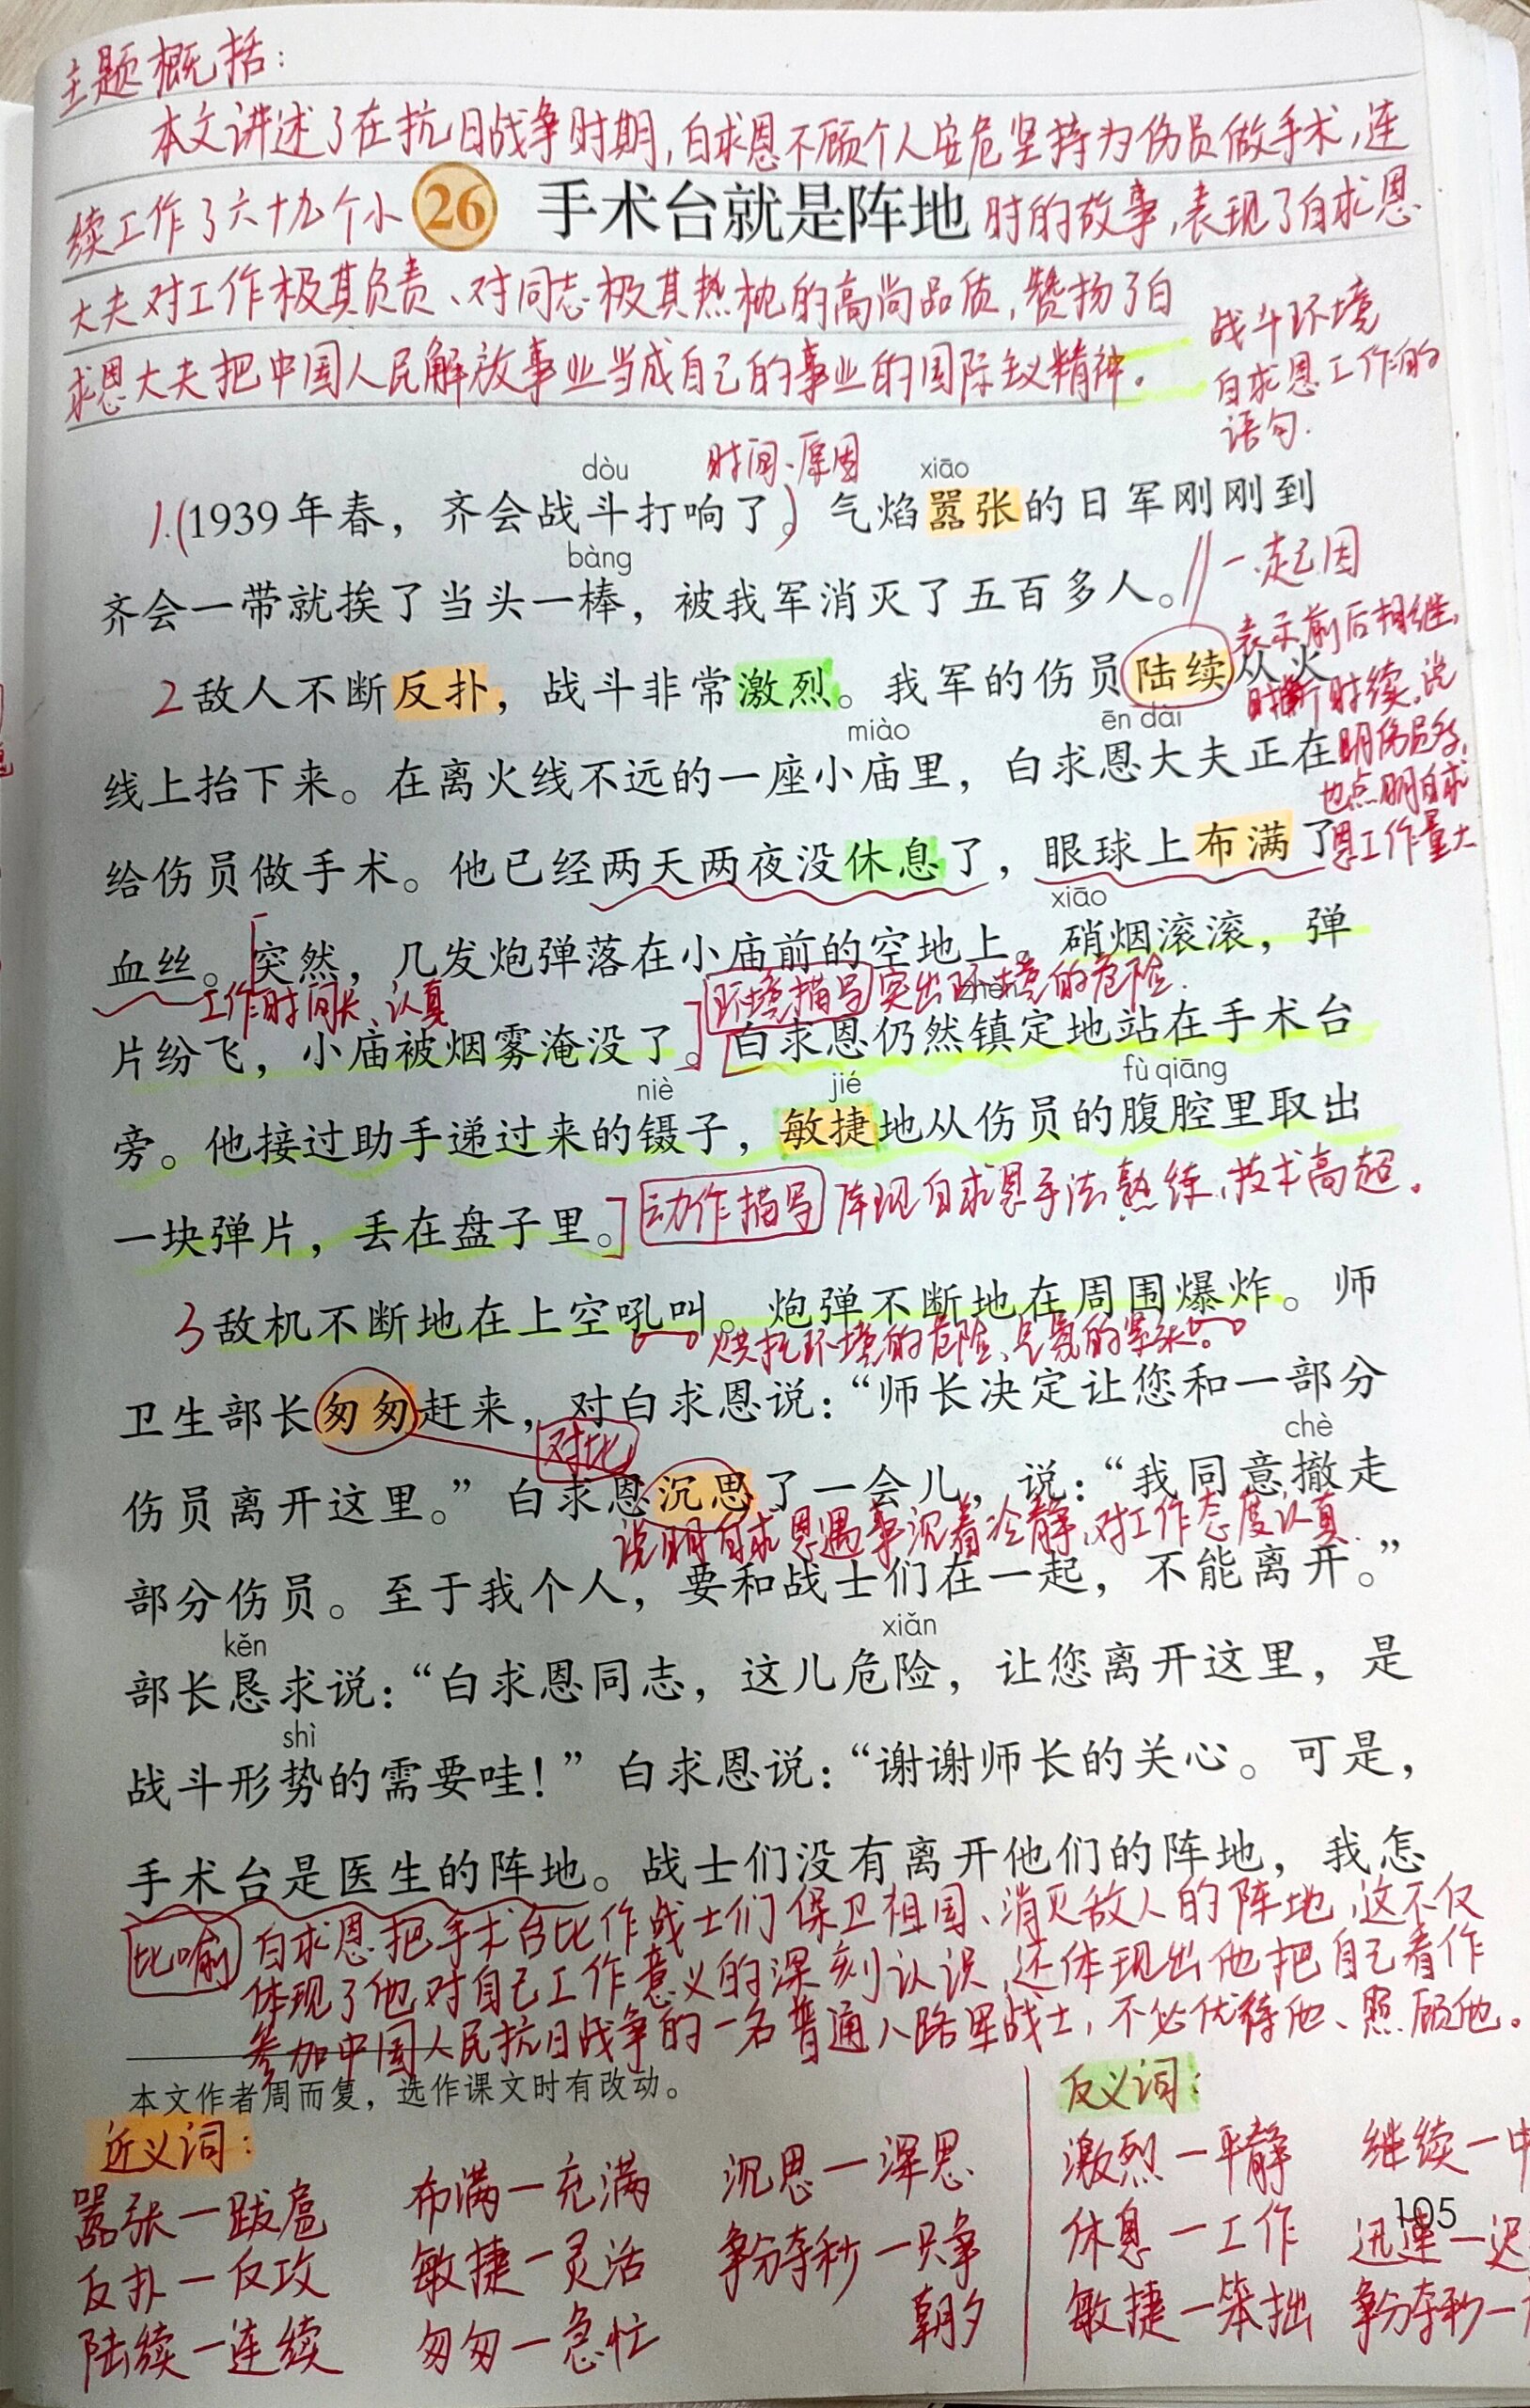 主题概括：
本文讲述了在抗日战争时期,白求恩不顾个人安危坚持为伤员做手术,连
续工作了六十九个小 26 手术台就是阵地 时的故事,表现了白求恩
大夫对工作极其负责、对同志极其热枕的高尚品质,赞扬了白
求恩大夫把中国人民解放事业当成自己的事业的国际主义精神。
战斗环境
白求恩工作的
语句.
dòu 时间、原因 xiāo
1.(1939年春，齐会战斗打响了。) 气焰嚣张的日军刚刚到
bàng
齐会一带就挨了当头一棒，被我军消灭了五百多人。// 一、起因
表示前后相继,
2敌人不断反扑，战斗非常激烈。我军的伤员陆续从火
时断时续。说
miào ēn dài
线上抬下来。在离火线不远的一座小庙里，白求恩大夫正在
明伤员多,
也点明白求
恩工作量大
给伤员做手术。他已经两天两夜没休息了，眼球上布满了
xiāo
血丝。突然，几发炮弹落在小庙前的空地上。硝烟滚滚，弹
工作时间长、认真
环境描写 突出环境的危险.
zhèn
片纷飞，小庙被烟雾淹没了。白求恩仍然镇定地站在手术台
niè jié fù qiāng
旁。他接过助手递过来的镊子，敏捷地从伤员的腹腔里取出
一块弹片，丢在盘子里。 动作描写 体现白求恩手法熟练、技术高超。
3敌机不断地在上空吼叫。炮弹不断地在周围爆炸。师
烘托环境的危险、气氛的紧张。
卫生部长匆匆赶来，对白求恩说：“师长决定让您和一部分
对比
chè
伤员离开这里。”白求恩沉思了一会儿，说：“我同意撤走
说明白求恩遇事沉着冷静、对工作态度认真.
部分伤员。至于我个人，要和战士们在一起，不能离开。”
kěn xiǎn
部长恳求说：“白求恩同志，这儿危险，让您离开这里，是
shì
战斗形势的需要哇！”白求恩说：“谢谢师长的关心。可是，
手术台是医生的阵地。战士们没有离开他们的阵地，我怎
比喻 白求恩把手术台比作战士们保卫祖国、消灭敌人的阵地,这不仅
体现了他对自己工作意义的深刻认识,还体现出他把自己看作
参加中国人民抗日战争的一名普通八路军战士,不必优待他、照顾他。
本文作者周而复，选作课文时有改动。
近义词：
嚣张—跋扈 布满—充满 沉思—深思
反扑—反攻 敏捷—灵活 争分夺秒—只争
陆续—连续 匆匆—急忙 朝夕
反义词：
激烈—平静 继续—中
休息—工作 迅速—迟
敏捷—笨拙 争分夺秒—
105